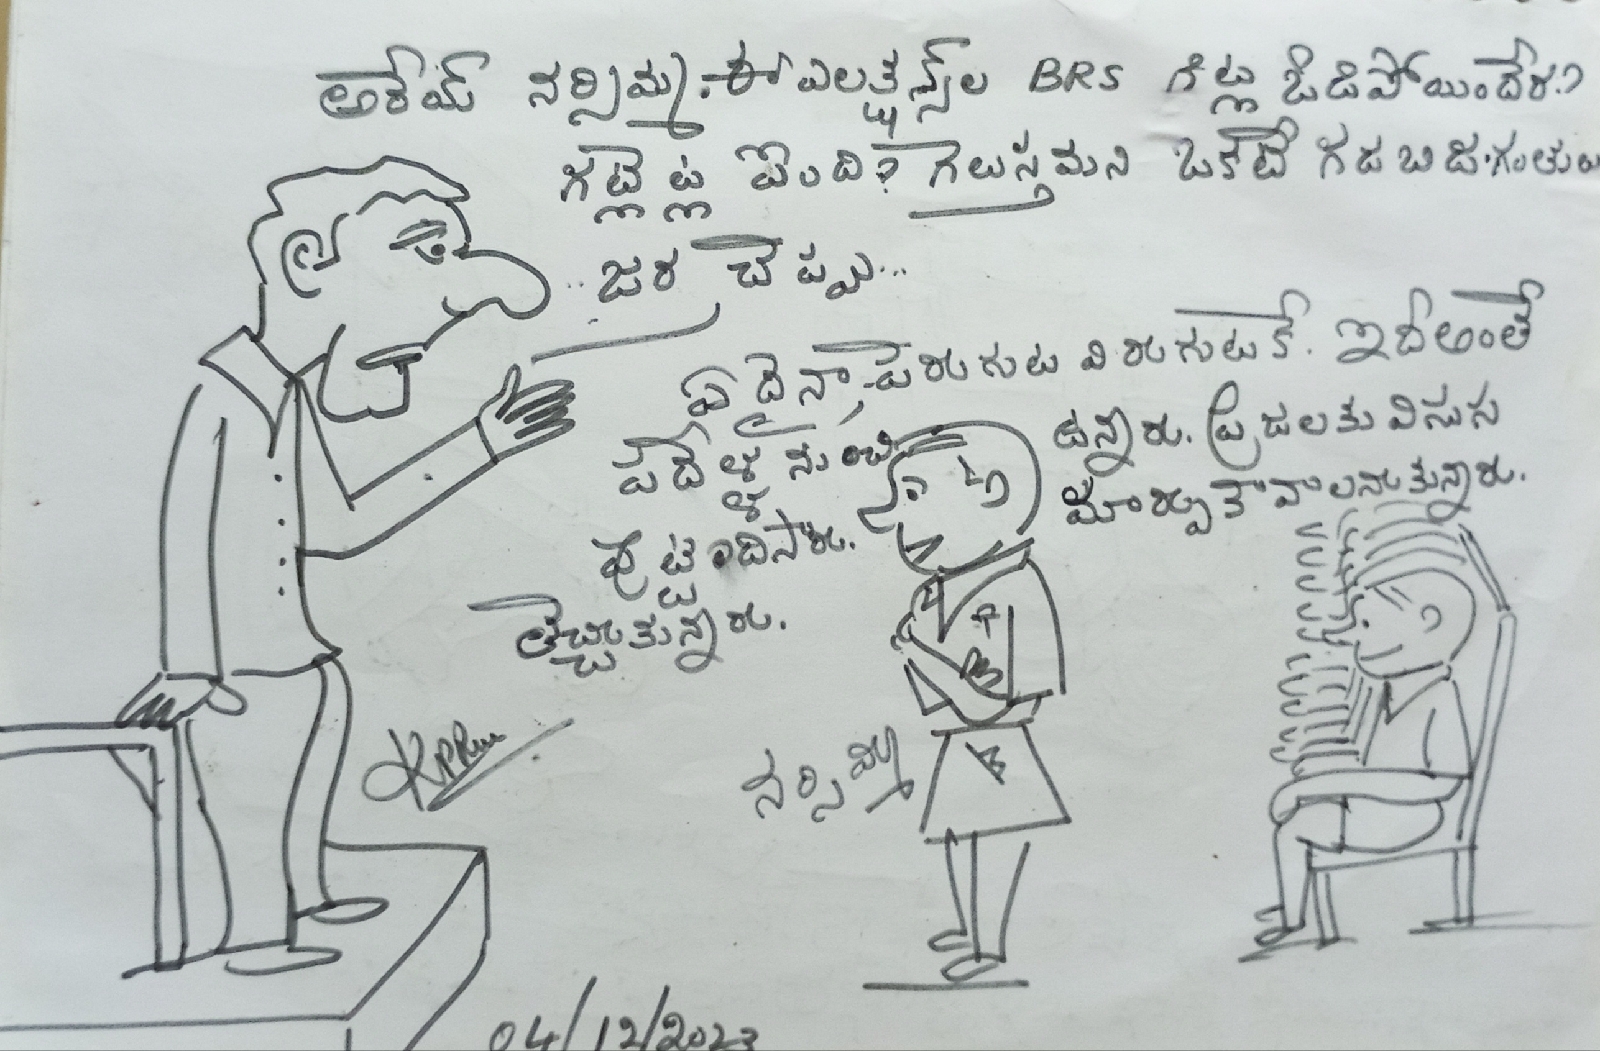 అరేయ్ నర్సిమ్మ. ఈ ఎలక్షన్స్‌ల BRS గిట్ల ఓడిపోయిందేర?
గట్లెట్ల పోంది? గెలుస్తమని ఒకటే గడబడ.గంతులు
..జర చెప్పు...
ఏదైనా,పెరుగుట విరుగుటకే. ఇదే అంతే
పదేళ్ళ నుంచి ఉన్నారు. ప్రజలకు విసుగు
పుట్టందిసారు. మార్పు కావాలనుకున్నారు.
తెచ్చుకున్నారు.
నర్సిమ్మ
04/12/2023